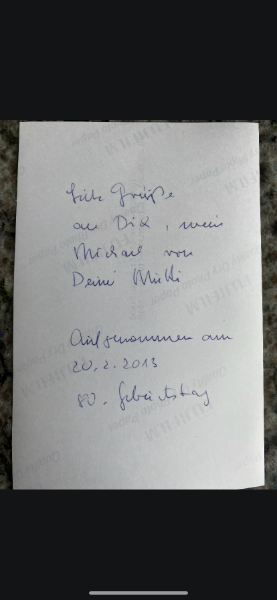 Liebe Grüße
an Dich, mein
Michael von
Deine Mutti
Aufgenommen am
20.2.2013
80. Geburtstag
FUJIFILM